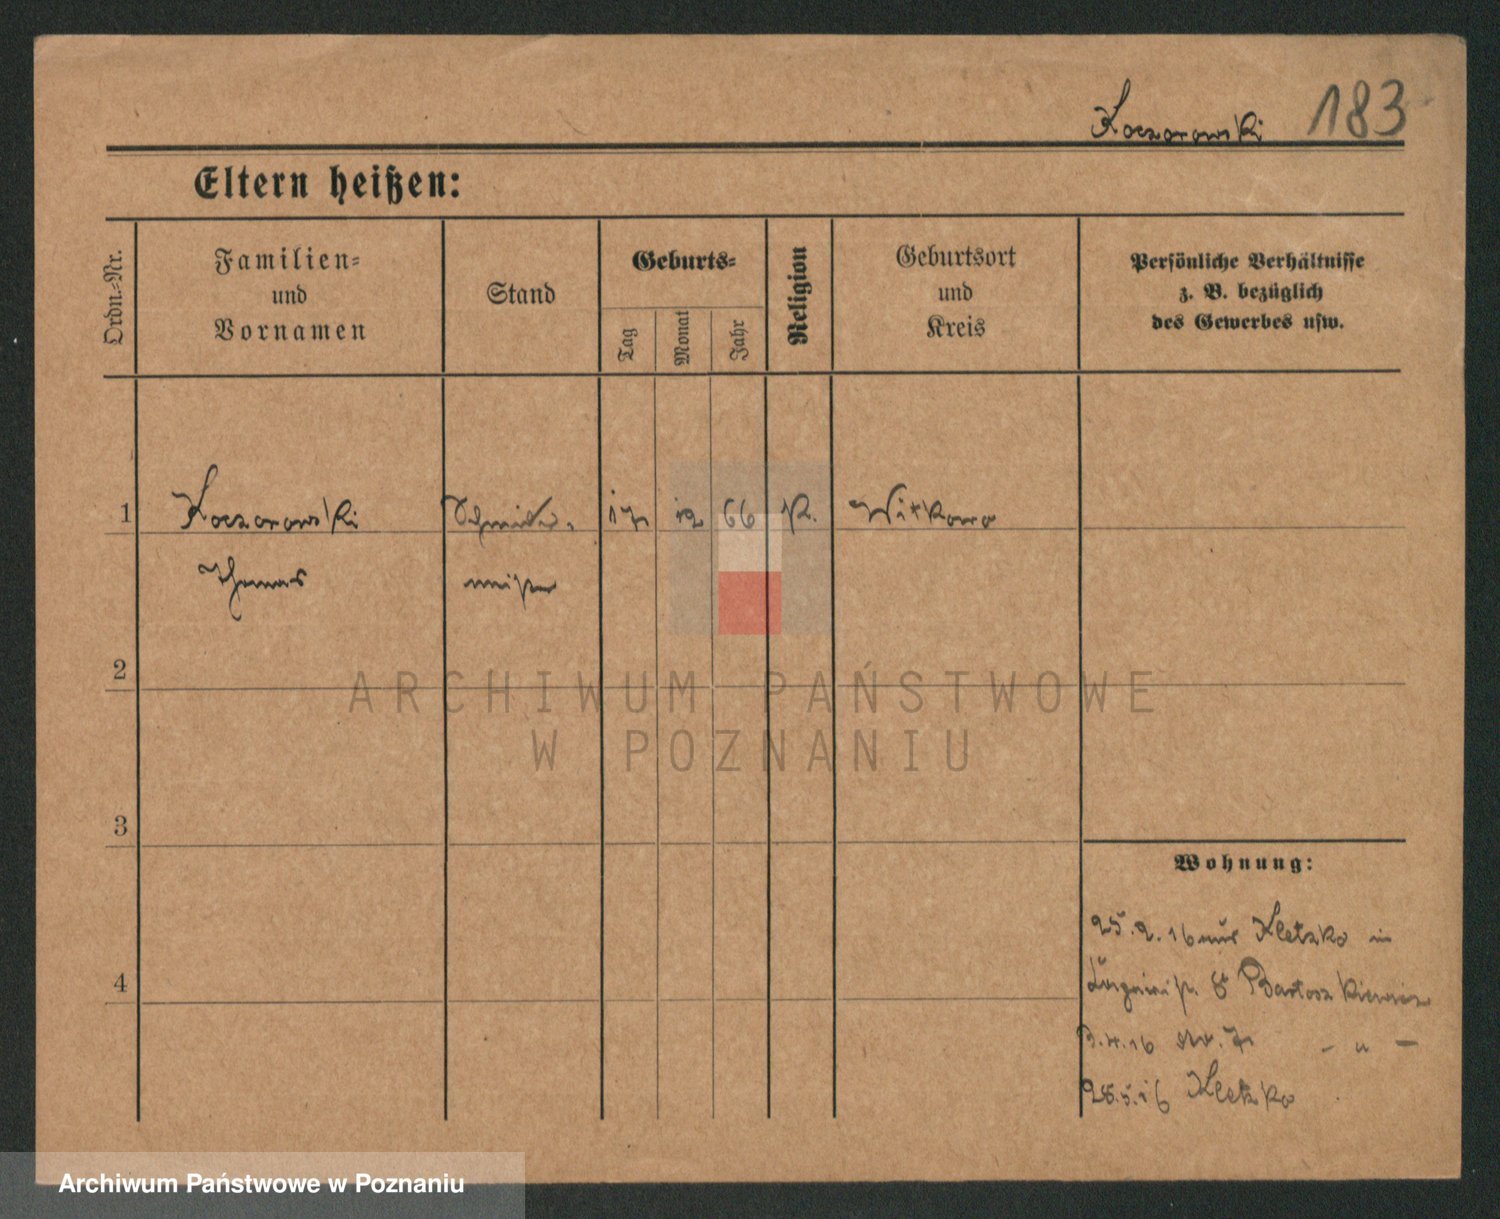 Koczorowski 183
Eltern heißen:
Ordn.-Nr.
Familien-
und
Vornamen
Stand
Geburts-
Tag
Monat
Jahr
Religion
Geburtsort
und
Kreis
Persönliche Verhältnisse
z. B. bezüglich
des Gewerbes usw.
1 Koczorowski 17 12 66 K. Witkowo
Thomas meister
2
3
4
Wohnung:
25.2.16 aus Kletzko in
8 Bartoszkiewicz
3.4.16 7 - " -
28.5.16 Kletzko
ARCHIWUM PAŃSTWOWE
W POZNANIU
Archiwum Państwowe w Poznaniu